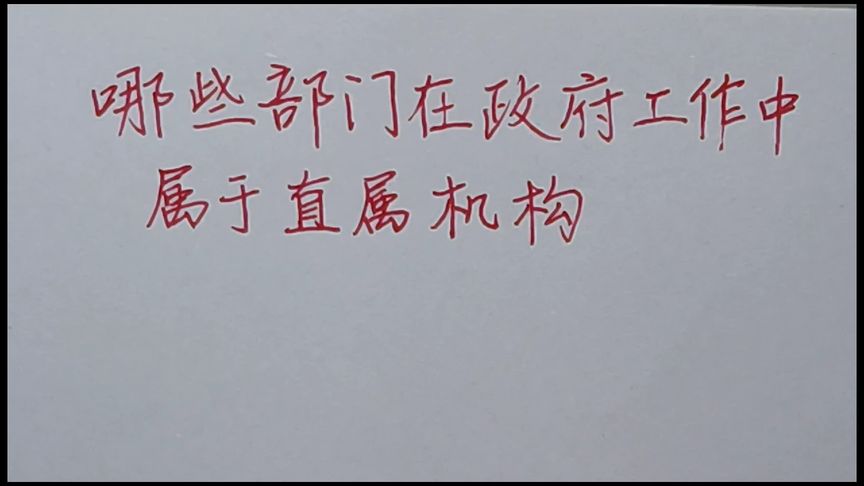 哪些部门在政府工作中
属于直属机构